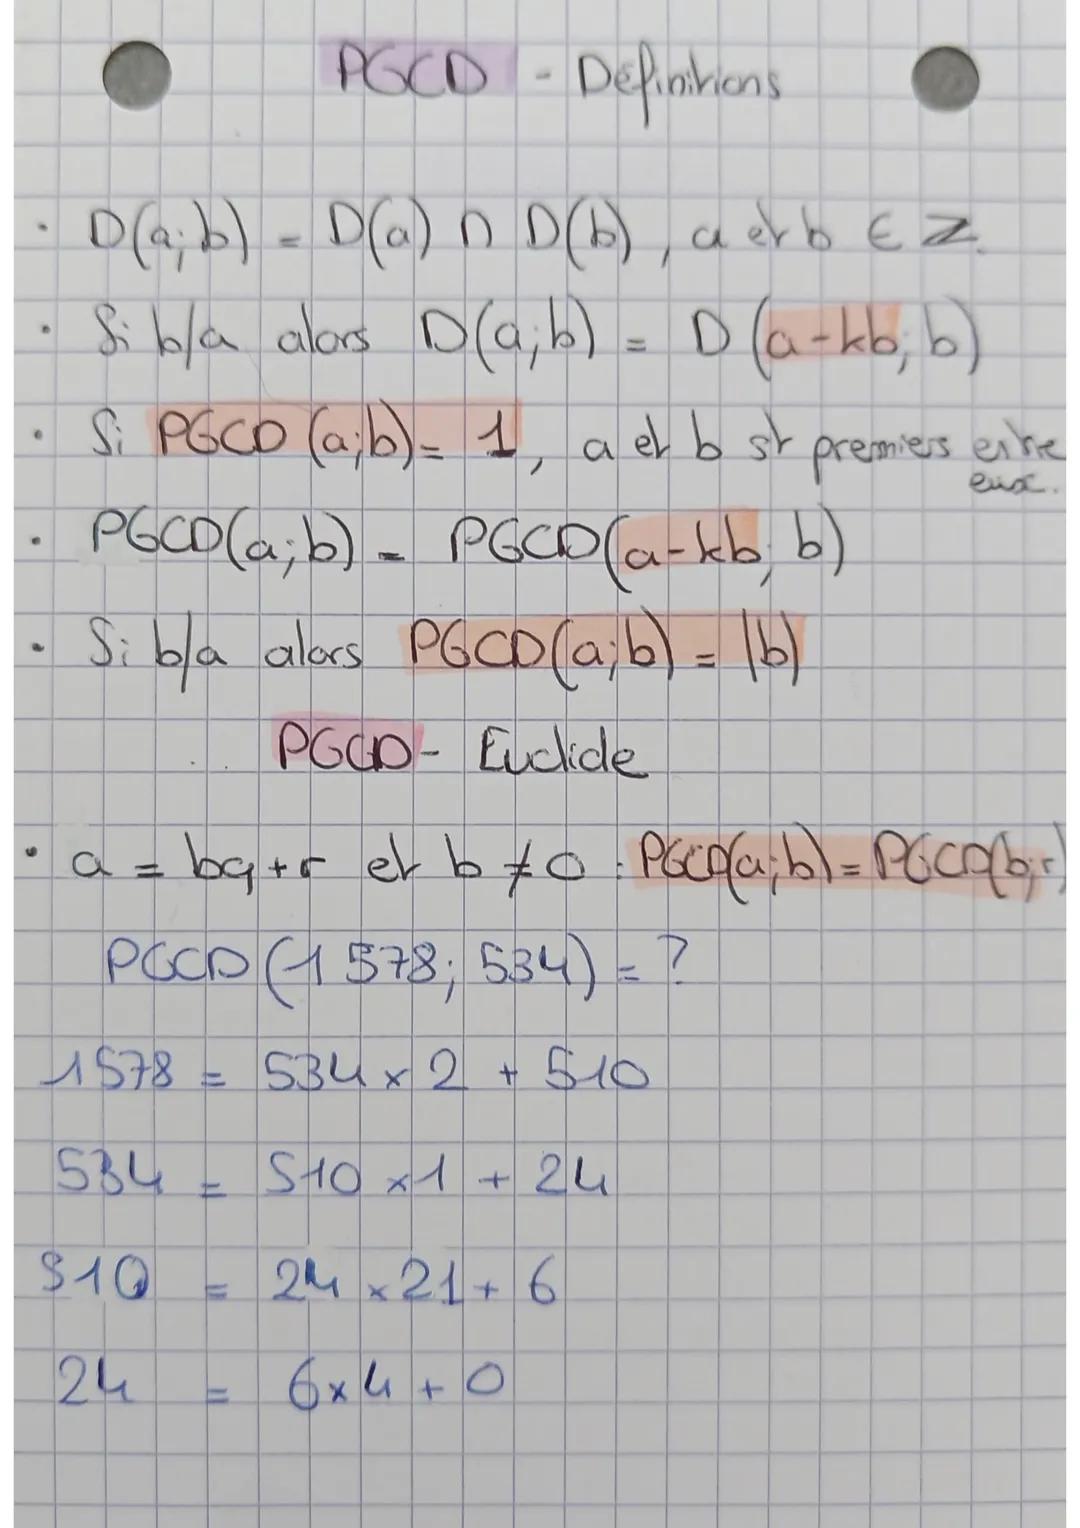 PGCD - Définitions
· D(a;b) = D(a) ∩ D(b), a et b ∈ ℤ.
· Si b/a alors D(a;b) = D(a-kb; b)
· Si PGCD(a;b) = 1, a et b st premiers entre
eux.
· PGCD(a;b) = PGCD(a-kb; b)
· Si b/a alors PGCD(a;b) = |b|
PGCD - Euclide
· a = bq+r et b ≠ 0 : PGCD(a;b) = PGCD(b;r)
PGCD(1578; 534) = ?
1578 = 534 × 2 + 510
534 = 510 × 1 + 24
510 = 24 × 21 + 6
24 = 6 × 4 + 0